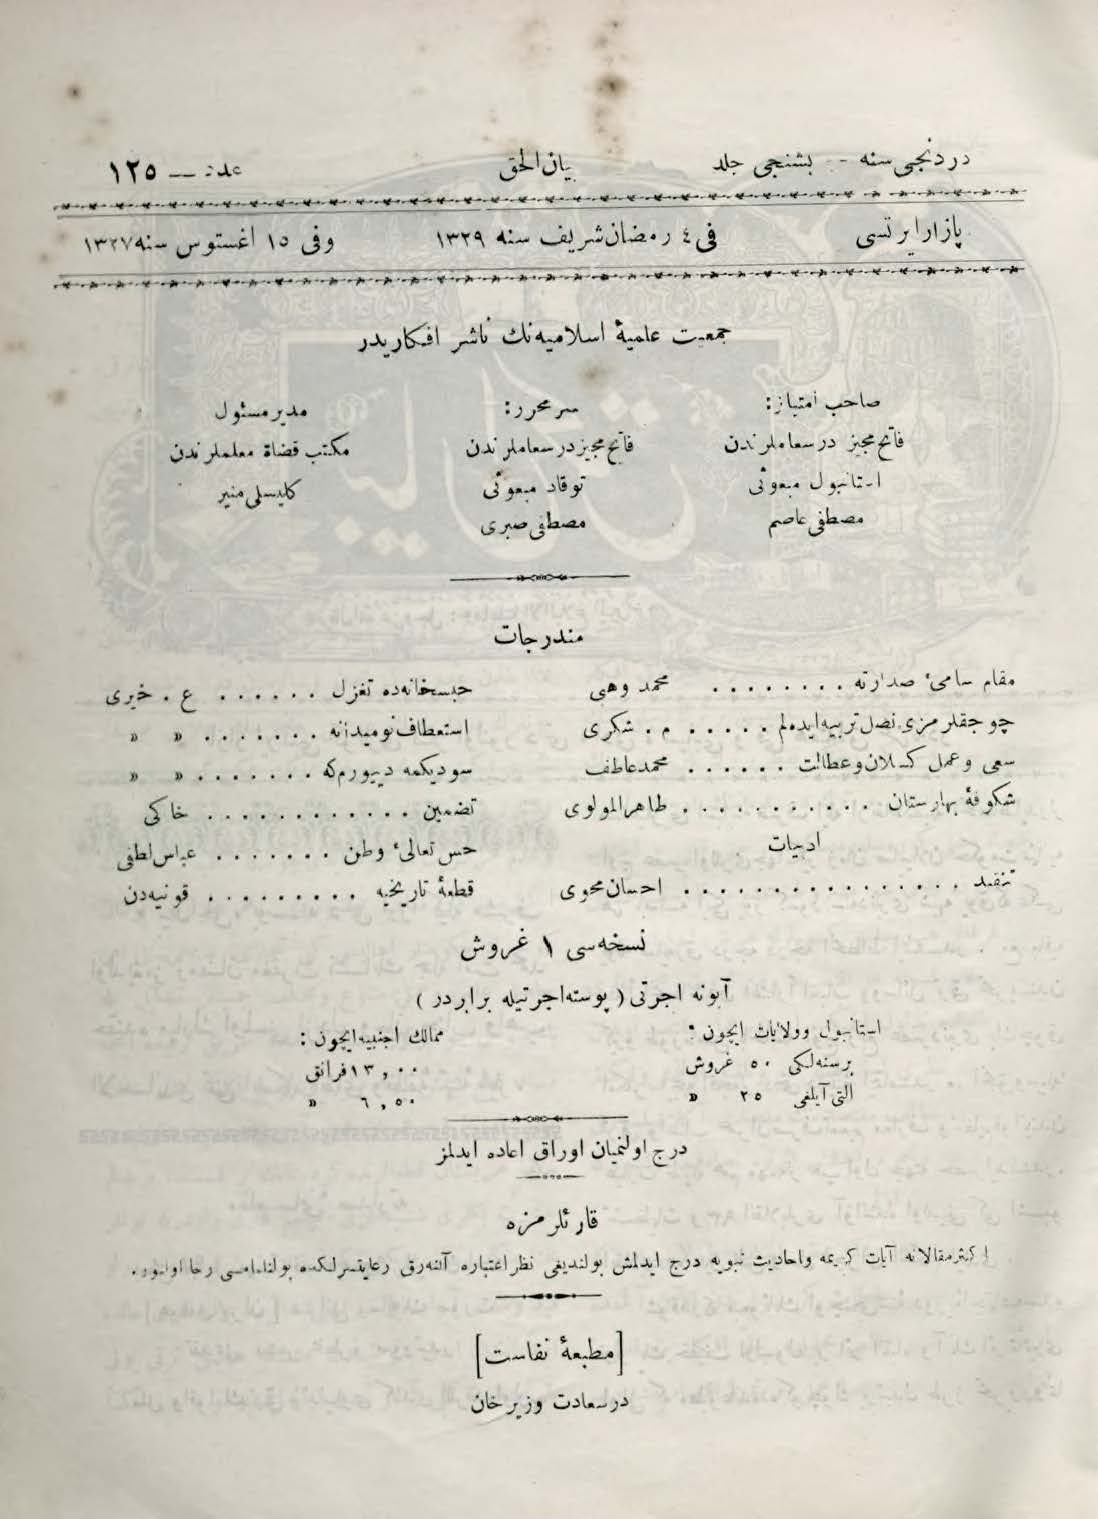 دردنجی سنه — بشنجی جلد بیان الحق عدد — ١٢٥
پازار ایرتسی فی ٤ رمضان شریف سنه ١٣٢٩ وفی ١٥ اغستوس سنه ١٣٢٧
جمعیت علمیهٔ اسلامیه‌نك ناشر افكاریدر
صاحب امتیاز:
فاتح مجیز درسعاملرندن
استانبول مبعوثی
مصطفی عاصم
سرمحرر:
فاتح مجیز درسعاملرندن
توقاد مبعوثی
مصطفی صبری
مدیر مسئول
مكتب قضاة معلملرندن
كلیسلی منیر
مندرجات
مقام سامیٔ صدارته . . . . . . . . محمد وهبی
چوجقلرمزی نصل تربیه ایده‌لم . . . . . م . شكری
سعی و عمل كسلان وعطالت . . . . . . محمد عاطف
شكوفهٔ بهارستان . . . . . . . . . . . طاهر المولوی
ادبیات
تنقید . . . . . . . . . . . . . . . . احسان محوی
حبسخانه‌ده تغزل . . . . . . ع . خیری
استعطاف نومیدانه . . . . . . . « «
سودیكمه دییورم‌كه . . . . . . . « «
تضمین . . . . . . . . . . . . خاكی
حس تعالیٔ وطن . . . . . . . عباس لطفی
قطعهٔ تاریخیه . . . . . . . . . قونیه‌دن
نسخه‌سی ١ غروش
آبونه اجرتی ( پوسته اجرتیله برابردر )
استانبول وولایات ایچون :
برسنه‌لكی ٥٠ غروش
التی آیلغی ٢٥ «
ممالك اجنبیه ایچون :
١٣,٠٠ فرانق
٦,٥٠ «
درج اولنمیان اوراق اعاده ایدلمز
قارئلرمزه
اكثر مقالاته آیات كریمه واحادیث نبویه درج ایدلمش بولندیغی نظر اعتباره آلنه‌رق رعایتسزلكده بولنلمامسی رجا اولنور.
[مطبعهٔ نفاست]
درسعادت وزیرخان